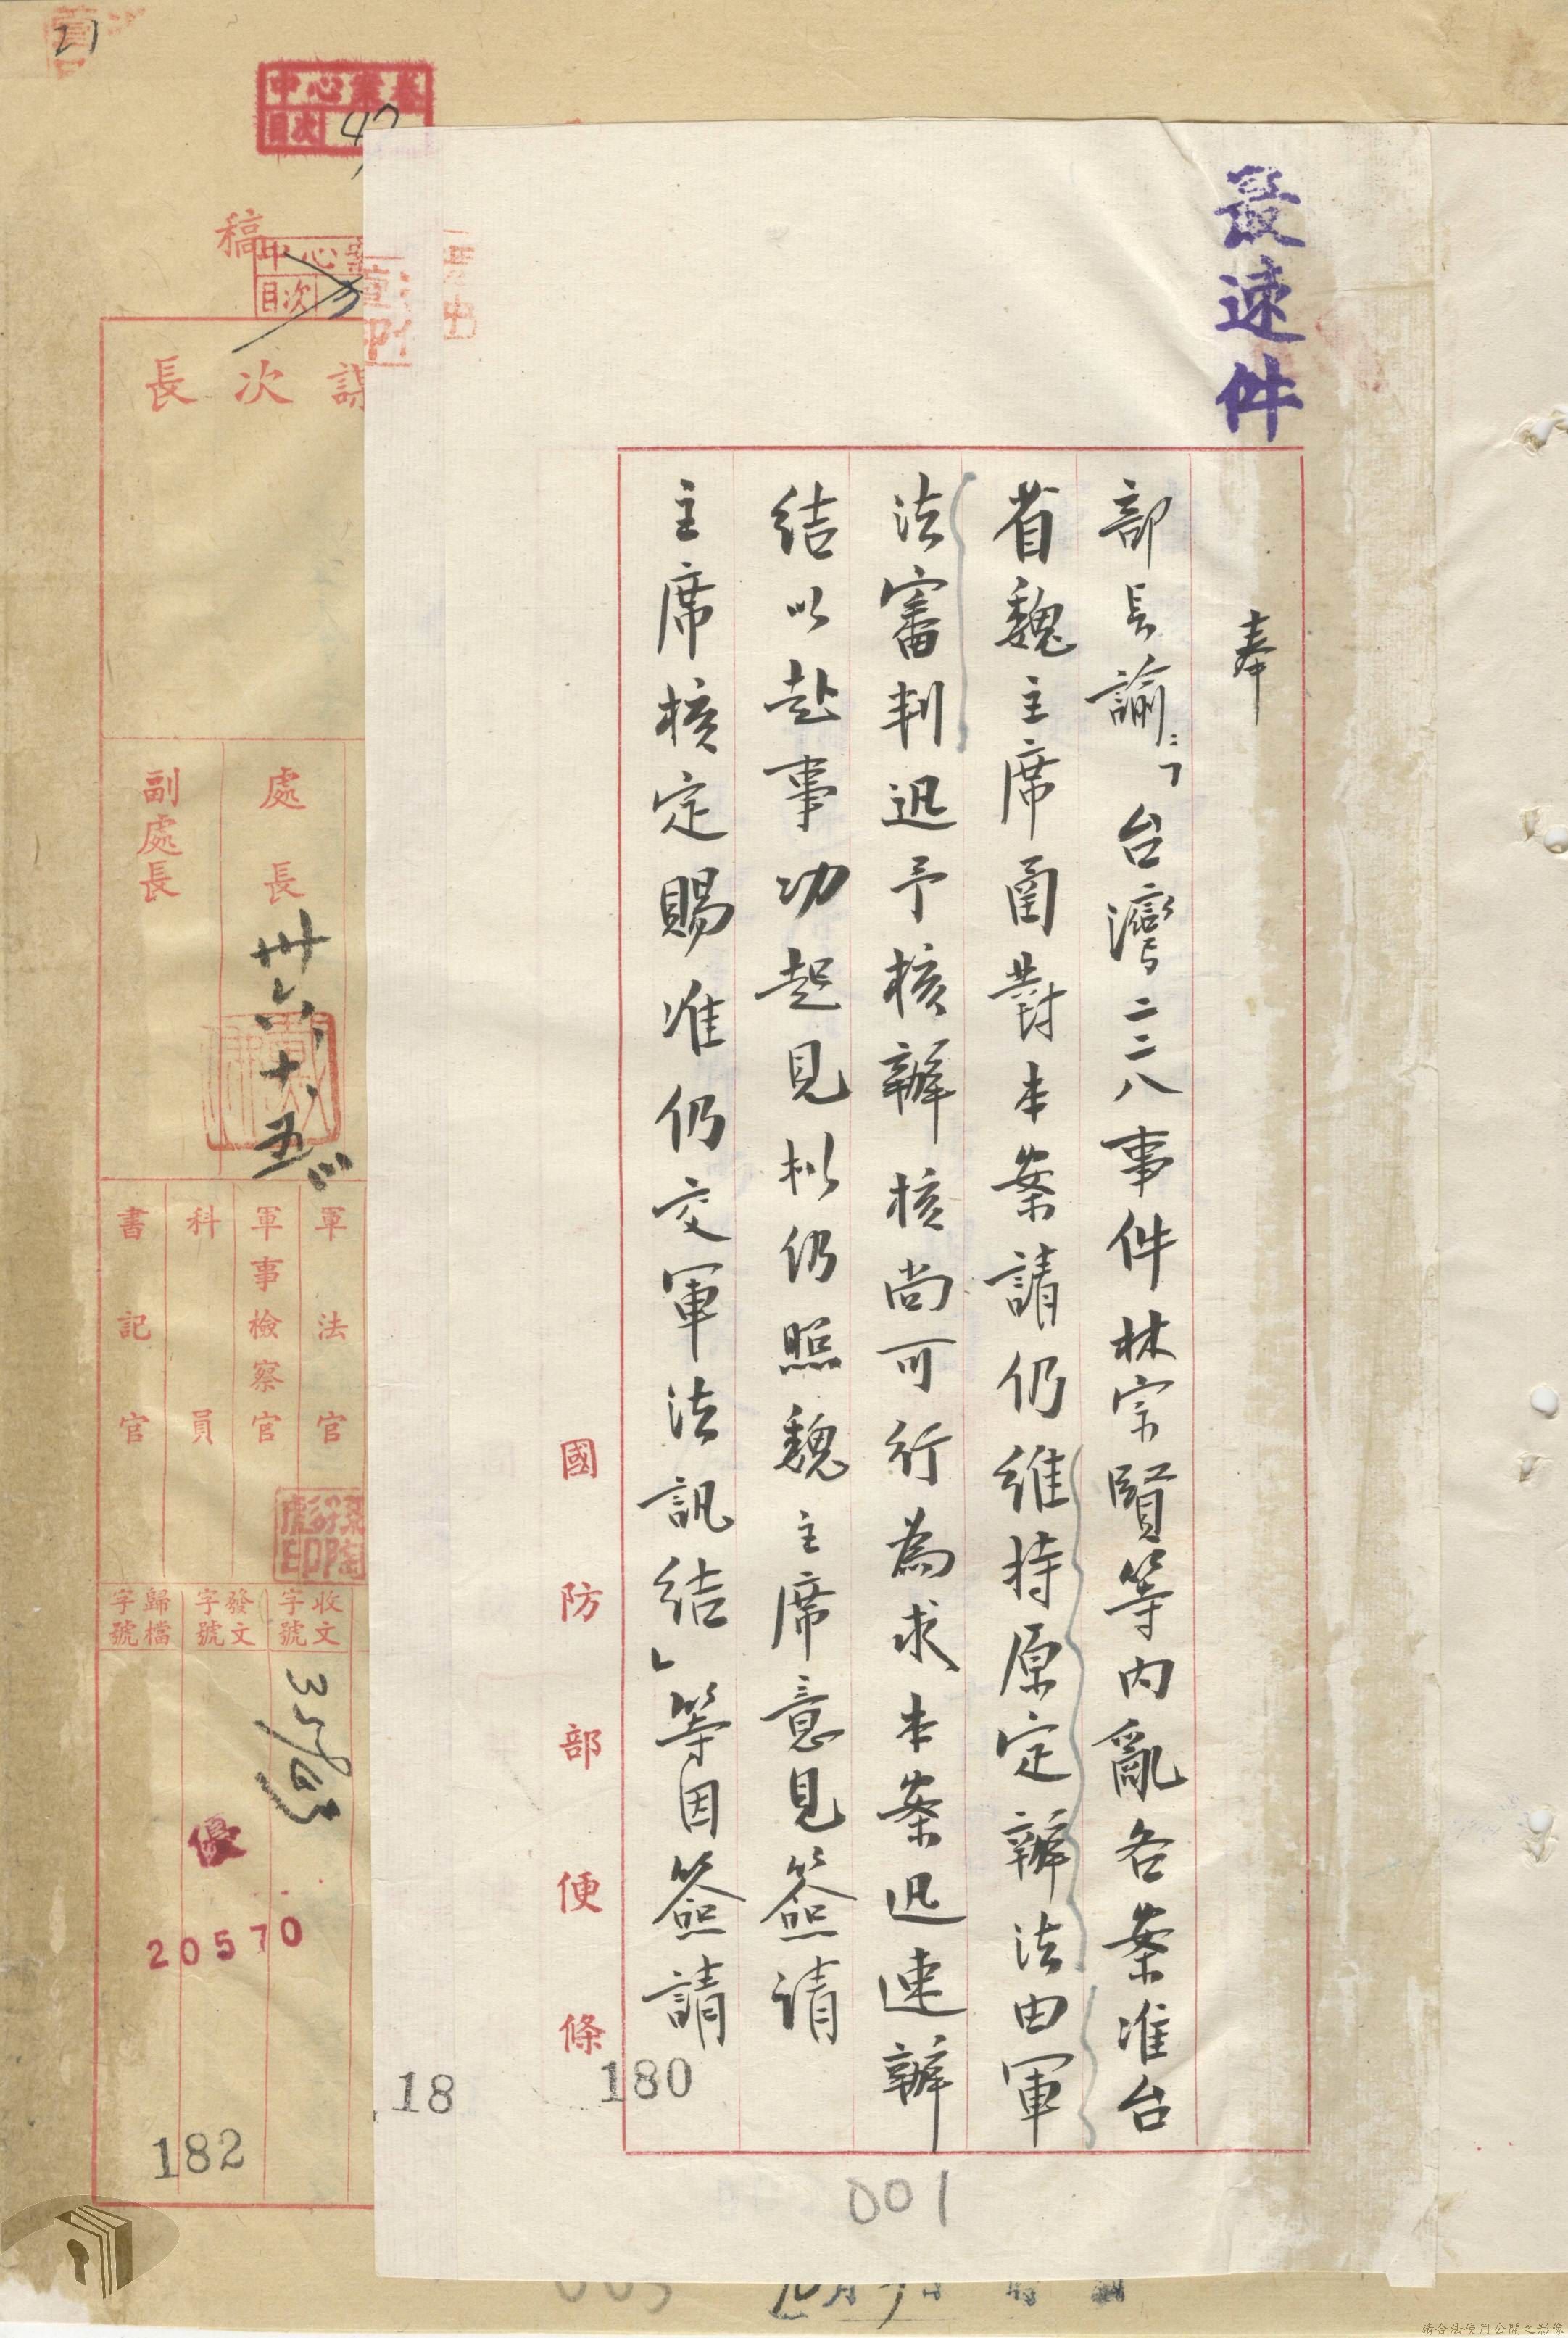 最速件
奉
部長諭:「台灣二二八事件林宗賢等內亂各案准台
省魏主席函對本案請仍維持原定辦法由軍
法審判迅予核辦核尚可行為求本案迅速辦
結以赴事功起見擬仍照魏主席意見簽請
主席核定賜准仍交軍法訊結」等因簽請
國防部便條
180
001
18
中心業務
目次
47
21
稿
中心
目次
謀次長
處長
卅六、十、五
副處長
軍法官
軍事檢察官
科員
書記官
收文字號
發文字號
歸檔字號
優
20570
182
003
請合法使用公開之影像